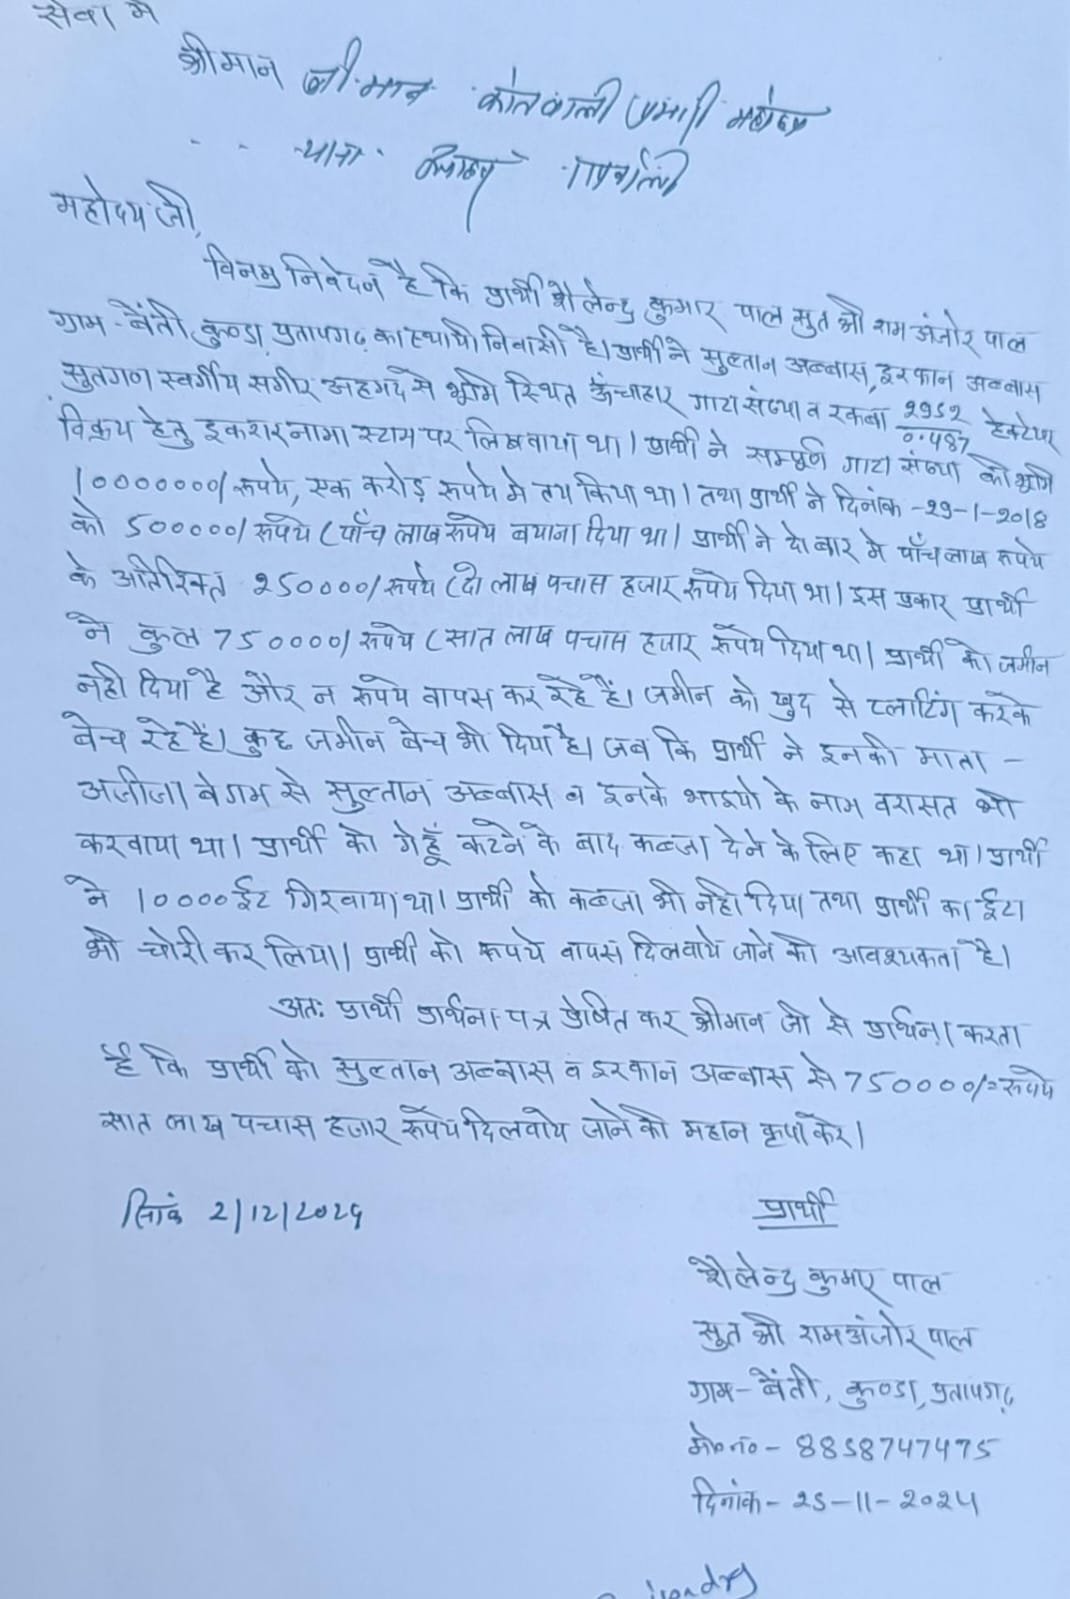 सेवा में
श्रीमान श्रीमान कोतवाली प्रभारी महोदय
थाना
महोदय जी,
विनम्र निवेदन है कि प्रार्थी शैलेन्द्र कुमार पाल सुत श्री राम अंजोर पाल
ग्राम - बेंती, कुण्डा, प्रतापगढ़ का स्थायी निवासी है। प्रार्थी ने सुल्तान अब्बास, इरफान अब्बास
सुतगण स्वर्गीय सगीर अहमद से भूमि स्थित ऊंचाहार गाटा संख्या व रकबा 2952/0.487 हेक्टेयर
विक्रय हेतु इकरारनामा स्टाम पर लिखवाया था। प्रार्थी ने सम्पूर्ण गाटा संख्या की भूमि
10000000/ रूपये, एक करोड़ रूपये मे तय किया था। तथा प्रार्थी ने दिनांक -29-1-2018
को 500000/ रूपये (पाँच लाख रूपये बयाना दिया था। प्रार्थी ने दो बार मे पाँच लाख रूपये
के अतिरिक्त 250000/ रूपये (दो लाख पचास हजार रूपये दिया था। इस प्रकार प्रार्थी
ने कुल 750000/ रूपये (सात लाख पचास हजार रूपये दिया था। प्रार्थी को जमीन
नही दिया है और न रूपये वापस कर रहे हैं। जमीन को खुद से प्लाटिंग करके
बेच रहे हैं। कुछ जमीन बेच भी दिया है। जब कि प्रार्थी ने इनकी माता -
अजीजा बेगम से सुल्तान अब्बास व इनके भाइयो के नाम वरासत भी
करवाया था। प्रार्थी को गेहूँ कटने के बाद कब्जा देने के लिए कहा था। प्रार्थी
ने 10000 ईट गिरवाया था। प्रार्थी को कब्जा भी नही दिया तथा प्रार्थी का ईटा
भी चोरी कर लिया। प्रार्थी को रूपये वापस दिलवाये जाने की आवश्यकता है।
अतः प्रार्थी प्रार्थना पत्र प्रेषित कर श्रीमान जी से प्रार्थना करता
है कि प्रार्थी को सुल्तान अब्बास व इरफान अब्बास से 750000/= रूपये
सात लाख पचास हजार रूपये दिलवाये जाने की महान कृपा करे।
प्रार्थी
2/12/2024
शैलेन्द्र कुमार पाल
सुत श्री राम अंजोर पाल
ग्राम - बेंती, कुण्डा, प्रतापगढ़
मो० नं० - 8858747475
दिनांक - 25-11-2024